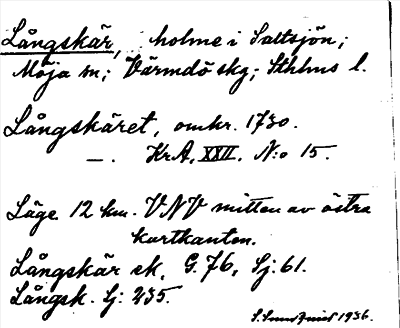 Långskär, holme i Saltsjön;
Möja sn; Värmdö skg; Sthlms l.
Långskäret, omkr. 1730.
—. Kr.A. XXII. N:o 15.
Läge 12 km. VNV mitten av östra
kartkanten.
Långskär ek. G. 76, Sj. 61.
Långsk. Sj: 235.
1936.